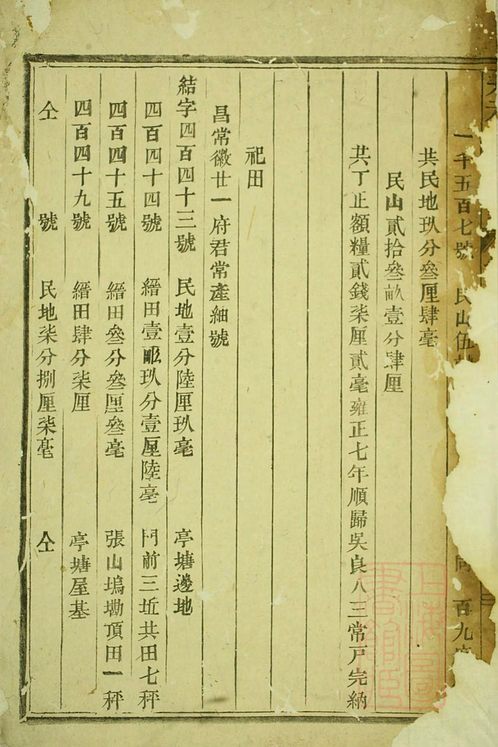 一千五百七號　民山伍
共民地玖分叄厘肆毫
民山貳拾叄畝壹分肆厘
共丁正額糧貳錢柒厘貳毫雍正七年順歸吳良八三常戸完納
祀田
昌常徽廿一府君常產紬號
結字四百四十三號　民地壹分陸厘玖毫　亭塘邊地
四百四十四號　縉田壹畝玖分壹厘陸毫　門前三坵共田七秤
四百四十五號　縉田叄分叄厘叄毫　張山塢塝頂田一秤
四百四十九號　縉田肆分柒厘　亭塘屋基
仝　號　民地柒分捌厘柒毫　仝